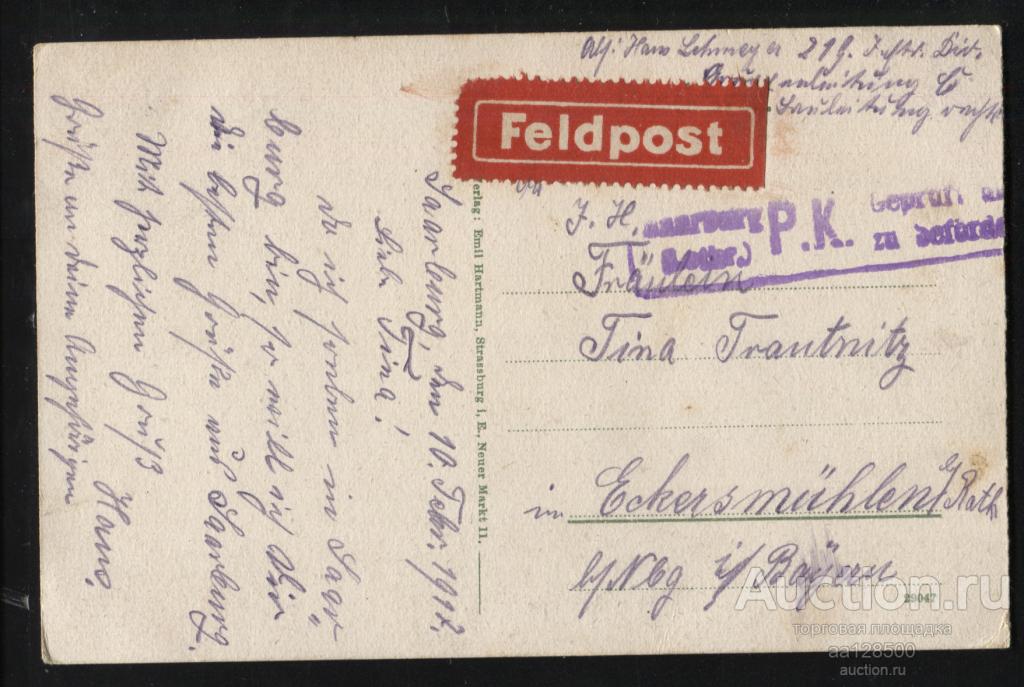 Abs: Hans Lehmeyer 219. Inftr. Div.
Bauleitung rechts
Feldpost
Saarburg
(Lothr.)
P.K. Geprüft u
zu beförde
T. H.
Fräulein
Tina Trautnitz
in Eckersmühlen b/Roth
b/Nbg i/Bayern
29047
Verlag: Emil Hartmann, Strassburg i. E., Neuer Markt 11.
Saarburg, den 10. Febr. 1917.
Liebe Tina!
Da ich soeben in Saar=
burg bin, so will ich Dir
die besten Grüße aus Saarburg.
Mit herzlichem Gruß
Hans.
Grüße an Deine Angehörigen
Auction.ru
торговая площадка
aa128500
auction.ru